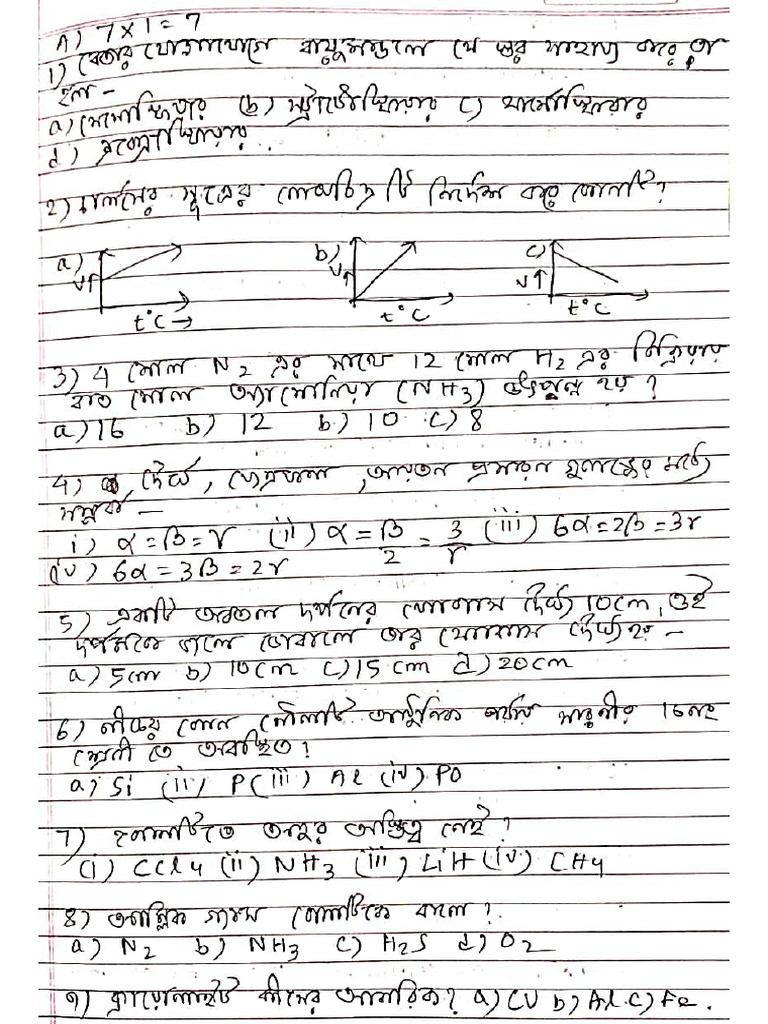 A) 7 x 1 = 7
1) বেতার যোগাযোগে বায়ুমণ্ডলে যে স্তর সাহায্য করে তা
হল -
a) মেসোস্ফিয়ার (b) স্ট্রাটোস্ফিয়ার c) থার্মোস্ফিয়ার
d)
2) চার্লসের সূত্রের লেখচিত্র টি নির্দেশ করে কোনটি?
a) b) c)
V↑ V↑ V↑
t°C → t°C t°C
3) 4 মোল N2 এর সাথে 12 মোল H2 এর বিক্রিয়ায়
কত মোল অ্যামোনিয়া (NH3) উৎপন্ন হয় ?
a) 16 b) 12 b) 10 c) 8
4) দৈর্ঘ্য, ক্ষেত্রফল, আয়তন প্রসারন গুণাঙ্কের মধ্যে
সম্পর্ক -
i) α = β = γ (ii) α = β/2 = 3/γ (iii) 6α = 2β = 3γ
(iv) 6α = 3β = 2γ
5) একটি অবতল দর্পনের ফোকাস দৈর্ঘ্য 10cm, ওই
দর্পনকে জলে ডোবালে তার ফোকাস দৈর্ঘ্য হবে -
a) 5cm b) 10cm c) 15cm d) 20cm
6) নীচের কোন মৌলটি আধুনিক পর্যায় সারণীর 16নং
শ্রেনী তে অবস্থিত?
a) Si (ii) P (iii) Al (iv) PO
7) কোনটিতে অনুর অস্তিত্ব নেই?
(i) CCl4 (ii) NH3 (iii) LiH (iv) CH4
8) আম্লিক গ্যাস কোনটিকে বলে?
a) N2 b) NH3 c) H2S d) O2
9) ক্রায়োলাইট কীসের আকরিক? a) CU b) Al c) Fe.